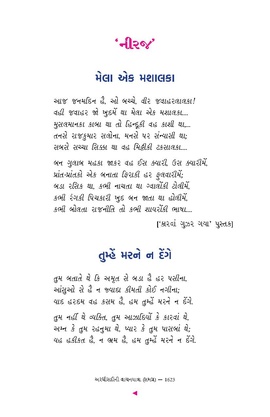 ‘નીરજ’
મેલા એક મશાલકા
આજ જનમદિન હૈ, ઓ બચ્ચે, વીર જવાહરલાલકા!
વહી જવાહર જો ખુદમેં થા મેલા એક મશાલકા...
મુસલમાનકા કાબા થા તો હિન્દૂકી વહ કાશી થા...
તનસે રાજકુમાર સલોના, મનસે પર સંન્યાસી થા;
સબસે સચ્ચા સિક્કા થા વહ મિટ્ટીકી ટકસાલકા...
બન ગુલાબ મહકા જાકર વહ ઈસ ક્યારી, ઉસ ક્યારીમેં,
પ્રાંત-પ્રાંતકો એક બનાતા ફિરાકી હર ફુલવારીમેં;
બડા રસિક થા, કભી નાચતા થા ગ્વાલોંકી ટોલીમેં,
કભી રંગકી પિચકારી ખુદ બન જાતા થા હોલીમેં,
કભી બોલતા રાજનીતિ તો કભી શાયરોંકી ભાષા...
[‘કારવાં ગુઝર ગયા’ પુસ્તક]
તુમ્હેં મરને ન દેંગે
તુમ બતાતે થે કિ અમૃત સે બડા હૈ હર પસીના,
આંસુઓં સે હૈ ન જ્યાદા કીમતી કોઈ નગીના;
યાદ હરદમ વહ કસમ હૈ, હમ તુમ્હેં મરને ન દેંગે.
તુમ નહીં થે વ્યક્તિ, તુમ આઝાદિયોં કે કારવાં થે,
અમ્ન કે તુમ રહનુમા થે, પ્યાર કે તુમ પાસબાં થે;
વહ હકીકત હૈ, ન ભ્રમ હૈ, હમ તુમ્હેં મરને ન દેંગે.
અરધીસદીની વાચનયાત્રા (ઇજમા) — 1623